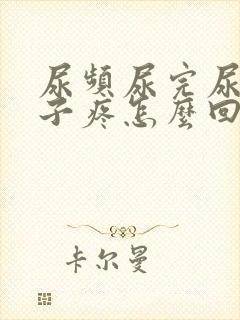 尿頻尿完尿
子疼怎麼回
卡尔曼